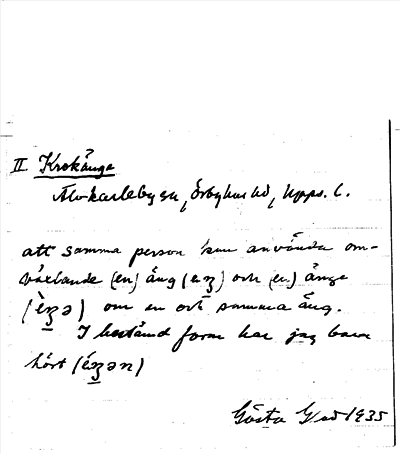 II Krokänge
Älvkarleby sn, Örbyhus hd, Upps. l.
att samma person kan använda om-
växlande (en) äng (eŋ) och (en) änge
(èŋə) om en och samma äng.
I bestämd form har jag bara
hört (éŋən)
Gösta 1935